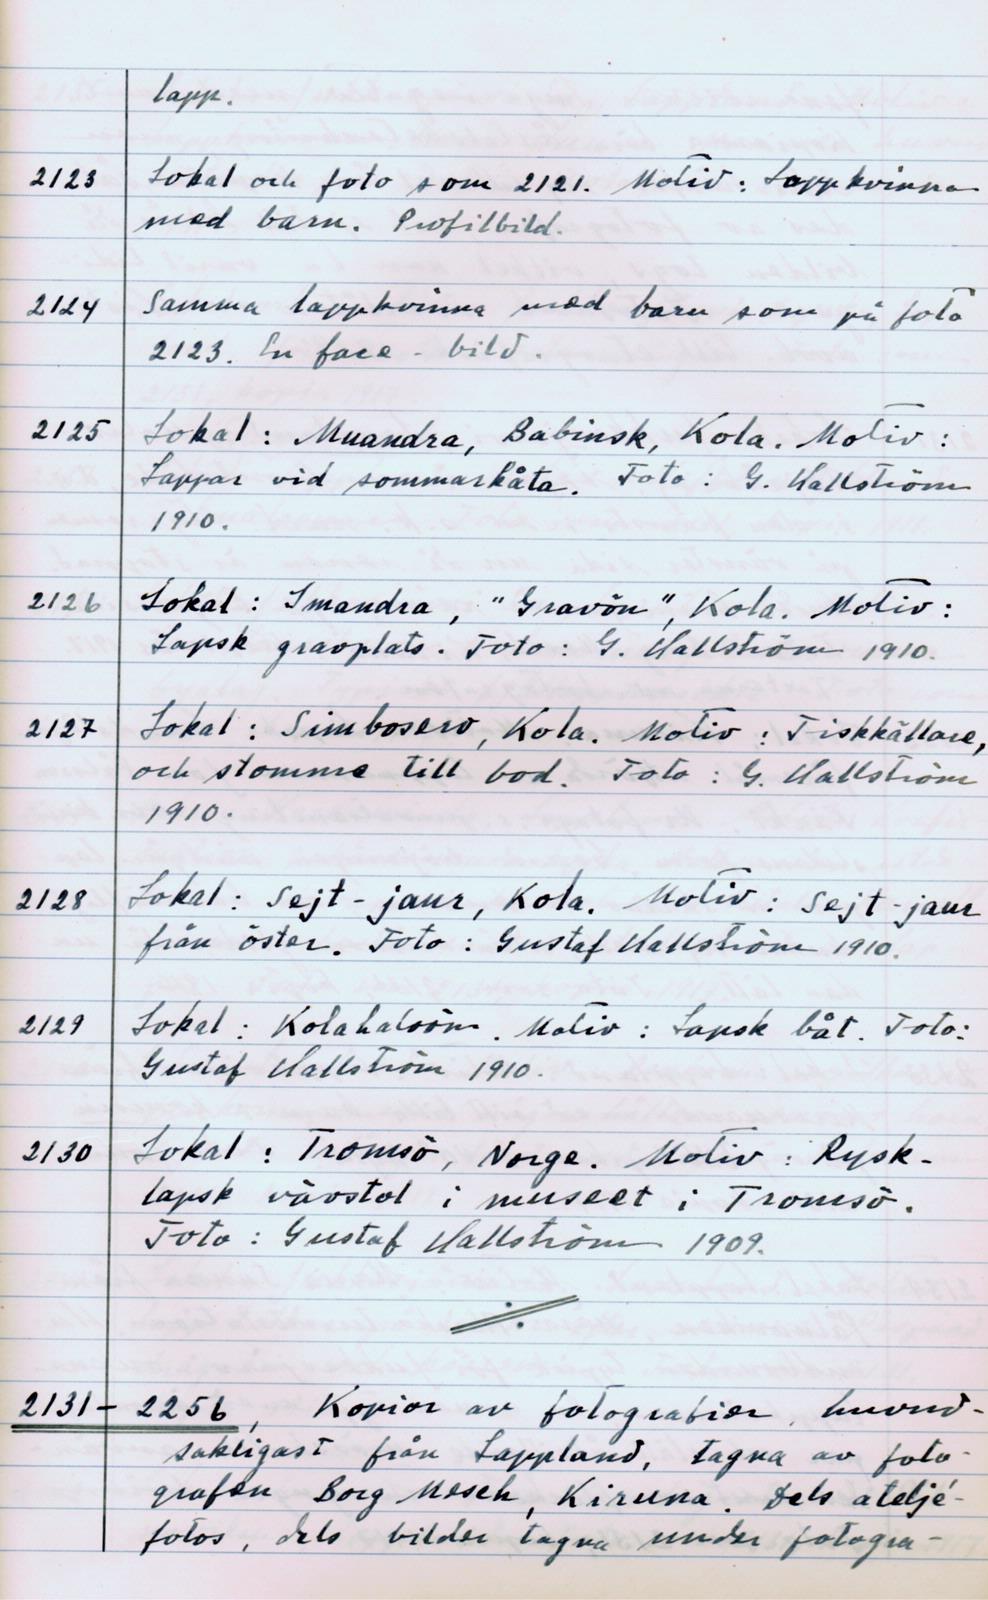 lapp.
2123 Lokal och foto som 2121. Motiv: Lappkvinna
med barn. Profilbild.
2124 Samma lappkvinna med barn som på foto
2123. En face - bild.
2125 Lokal: Muandra, Babinsk, Kola. Motiv:
Lappar vid sommarkåta. Foto: G. Hallström
1910.
2126 Lokal: Imandra, "Gravön", Kola. Motiv:
Lapsk gravplats. Foto: G. Hallström 1910.
2127 Lokal: Simbosero, Kola. Motiv: Fiskkällare,
och stomme till bod. Foto: G. Hallström
1910.
2128 Lokal: Sejt-jaur, Kola. Motiv: Sejt-jaur
från öster. Foto: Gustaf Hallström 1910.
2129 Lokal: Kolahalvön. Motiv: Lapsk båt. Foto:
Gustaf Hallström 1910.
2130 Lokal: Tromsö, Norge. Motiv: Rysk-
lapsk vävstol i museet i Tromsö.
Foto: Gustaf Hallström 1909.
2131 - 2256, Kopior av fotografier, huvud-
sakligast från Lappland, tagna av foto-
grafen Borg Mesch, Kiruna. Dels ateljé-
fotos, dels bilder tagna under fotogra-